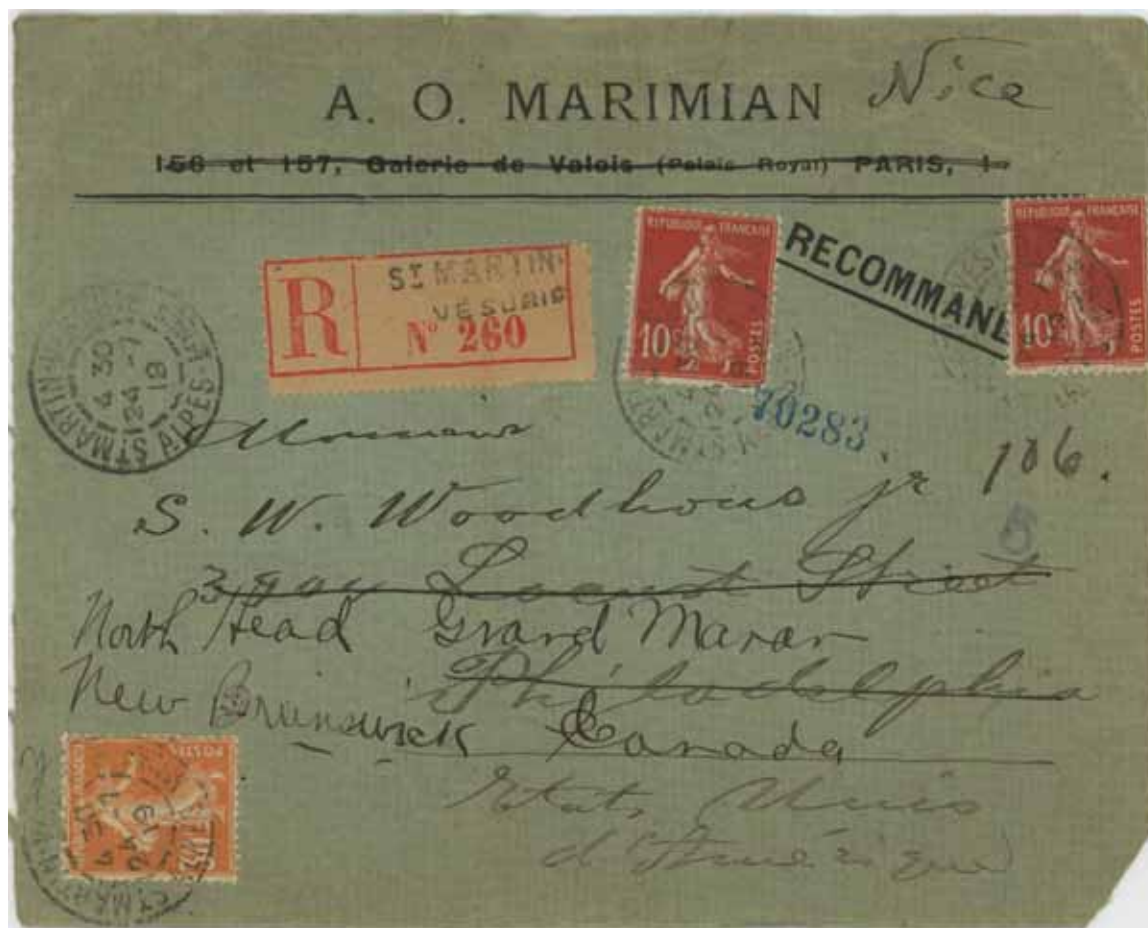 A. O. MARIMIAN Nice
156 et 157, Galerie de Valois (Palais Royal) PARIS, 1
R
ST MARTIN-
VÉSUBIE
N° 260
RECOMMAND
REPUBLIQUE FRANÇAISE
10c
POSTES
REPUBLIQUE FRANÇAISE
10c
POSTES
ST MARTIN
ALPES
4 30
24 -7
19
70283
Monsieur
S. W. Woodhous jr 106.
Locust Street
North Head Grand Manan
Philadelphia
New Brunswick Canada
Etats Unis
d'Amérique
POSTES